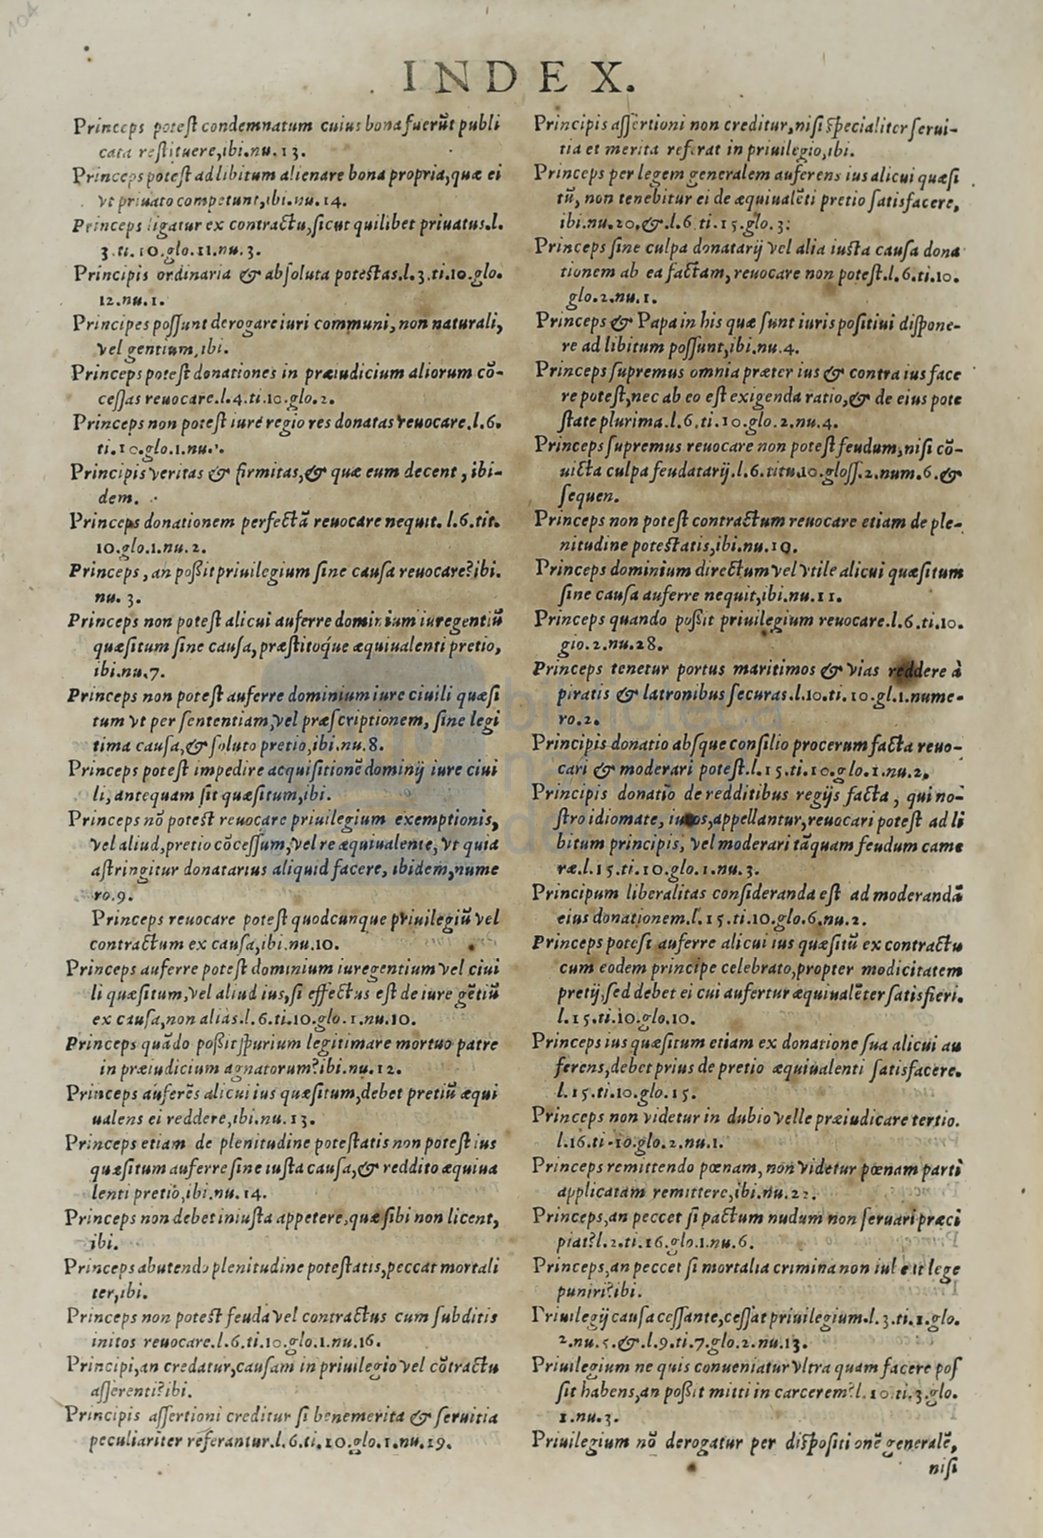 104
INDEX.
Princeps potest condemnatum cuius bona fuerũt publi
cata restituere, ibi. nu. 13.
Princeps potest ad libitum alienare bona propria, quæ ei
vt priuato competunt, ibi. nu. 14.
Princeps ligatur ex contractu, sicut quilibet priuatus. l.
3. ti. 10. glo. 11. nu. 3.
Principis ordinaria & absoluta potestas. l. 3. ti. 10. glo.
12. nu. 1.
Principes possunt derogare iuri communi, non naturali,
vel gentium, ibi.
Princeps potest donationes in præiudicium aliorum cõ-
cessas reuocare. l. 4. ti. 10. glo. 2.
Princeps non potest iure regio res donatas reuocare. l. 6.
ti. 10. glo. 1. nu.
Principis veritas & firmitas, & quæ eum decent, ibi-
dem.
Princeps donationem perfectã reuocare nequit. l. 6. tit.
10. glo. 1. nu. 2.
Princeps, an poßit priuilegium sine causa reuocare? ibi.
nu. 3.
Princeps non potest alicui auferre dominium iure gentiũ
quæsitum sine causa, præstitoque æquiualenti pretio,
ibi. nu. 7.
Princeps non potest auferre dominium iure ciuili quæsi
tum vt per sententiam, vel præscriptionem, sine legi
tima causa, & soluto pretio, ibi. nu. 8.
Princeps potest impedire acquisitionẽ dominij iure ciui
li, antequam sit quæsitum, ibi.
Princeps nõ potest reuocare priuilegium exemptionis,
vel aliud, pretio cõcessum, vel re æquiualente, vt quia
astringitur donatarius aliquid facere, ibidem, nume
ro. 9.
Princeps reuocare potest quodcunque priuilegiũ vel
contractum ex causa, ibi. nu. 10.
Princeps auferre potest dominium iure gentium vel ciui
li quæsitum, vel aliud ius, si effectus est de iure gẽtiũ
ex causa, non aliàs. l. 6. ti. 10. glo. 1. nu. 10.
Princeps quãdo poßit spurium legitimare mortuo patre
in præiudicium agnatorum? ibi. nu. 12.
Princeps auferẽs alicui ius quæsitum, debet pretiũ æqui
ualens ei reddere, ibi. nu. 13.
Princeps etiam de plenitudine potestatis non potest ius
quæsitum auferre sine iusta causa, & reddito æquiua
lenti pretio, ibi. nu. 14.
Princeps non debet iniusta appetere, quæ sibi non licent,
ibi.
Princeps abutendo plenitudine potestatis, peccat mortali
ter, ibi.
Princeps non potest feuda vel contractus cum subditis
initos reuocare. l. 6. ti. 10. glo. 1. nu. 16.
Principi, an credatur, causam in priuilegio vel cõtractu
asserenti? ibi.
Principis assertioni creditur si benemerita & seruitia
peculiariter referantur. l. 6. ti. 10. glo. 1. nu. 19.
Principis assertioni non creditur, nisi specialiter serui-
tia et merita referat in priuilegio, ibi.
Princeps per legem generalem auferens ius alicui quæsi
tũ, non tenebitur ei de æquiualẽti pretio satisfacere,
ibi. nu. 20. &. l. 6 ti. 15. glo. 3.
Princeps sine culpa donatarij vel alia iusta causa dona
tionem ab ea factam, reuocare non potest. l. 6. ti. 10.
glo. 2. nu. 1.
Princeps & Papa in his quæ sunt iuris positiui dispone-
re ad libitum possunt, ibi. nu. 4.
Princeps supremus omnia præter ius & contra ius face
re potest, nec ab eo est exigenda ratio, & de eius pote
state plurima. l. 6. ti. 10. glo. 2. nu. 4.
Princeps supremus reuocare non potest feudum, nisi cõ-
uicta culpa feudatarij. l. 6. titu. 10. gloss. 2. num. 6. &
sequen.
Princeps non potest contractum reuocare etiam de ple-
nitudine potestatis, ibi. nu. 19.
Princeps dominium directum vel vtile alicui quæsitum
sine causa auferre nequit, ibi. nu. 11.
Princeps quando poßit priuilegium reuocare. l. 6. ti. 10.
glo. 2. nu. 28.
Princeps tenetur portus maritimos & vias reddere à
piratis & latronibus securas. l. 10. ti. 10. gl. 1. nume-
ro. 2.
Principis donatio absque consilio procerum facta reuo-
cari & moderari potest. l. 15. ti. 10. glo. 1. nu. 2.
Principis donatio de redditibus regijs facta, qui no-
stro idiomate, iuros, appellantur, reuocari potest ad li
bitum principis, vel moderari tãquam feudum came
ræ. l. 15. ti. 10. glo. 1. nu. 3.
Principum liberalitas consideranda est ad moderandã
eius donationem. l. 15. ti. 10. glo. 6. nu. 2.
Princeps potest auferre alicui ius quæsitũ ex contractu
cum eodem principe celebrato, propter modicitatem
pretij, sed debet ei cui aufertur æquiualẽter satisfieri.
l. 15. ti. 10. glo. 10.
Princeps ius quæsitum etiam ex donatione sua alicui au
ferens, debet prius de pretio æquiualenti satisfacere.
l. 15. ti. 10. glo. 15.
Princeps non videtur in dubio velle præiudicare tertio.
l. 16. ti. 10. glo. 2. nu. 1.
Princeps remittendo pœnam, non videtur pœnam parti
applicatam remittere, ibi. nu. 22.
Princeps, an peccet si pactum nudum non seruari præci
piat? l. 2. ti. 16. glo. 1. nu. 6.
Princeps, an peccet si mortalia crimina non iubeat lege
puniri? ibi.
Priuilegij causa cessante, cessat priuilegium. l. 3. ti. 1. glo.
2. nu. 5. &. l. 9. ti. 7. glo. 2. nu. 13.
Priuilegium ne quis conueniatur vltra quam facere pos
sit habens, an poßit mitti in carcerem? l. 10. ti. 3. glo.
1. nu. 3.
Priuilegium nõ derogatur per dispositionẽ generalẽ,
nisi